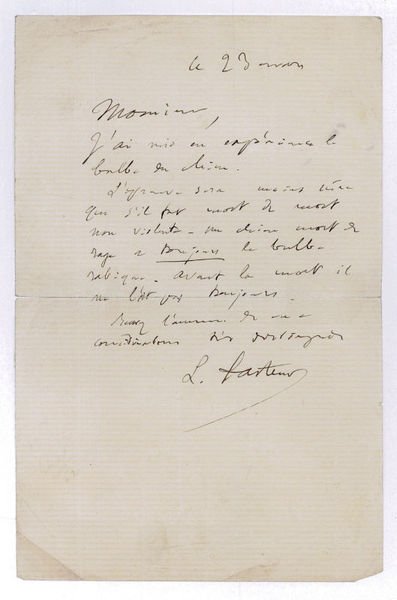 le 23 mars
Monsieur,
J'ai mis en expérience le
bulbe du chien.
L'épreuve sera moins sûre
que s'il fut mort de mort
non violente. Un chien mort de
rage a toujours le bulbe
rabique. Avant la mort il
ne l'est pas toujours.
Recevez l'assurance de ma
considération très distinguée
L. Pasteur